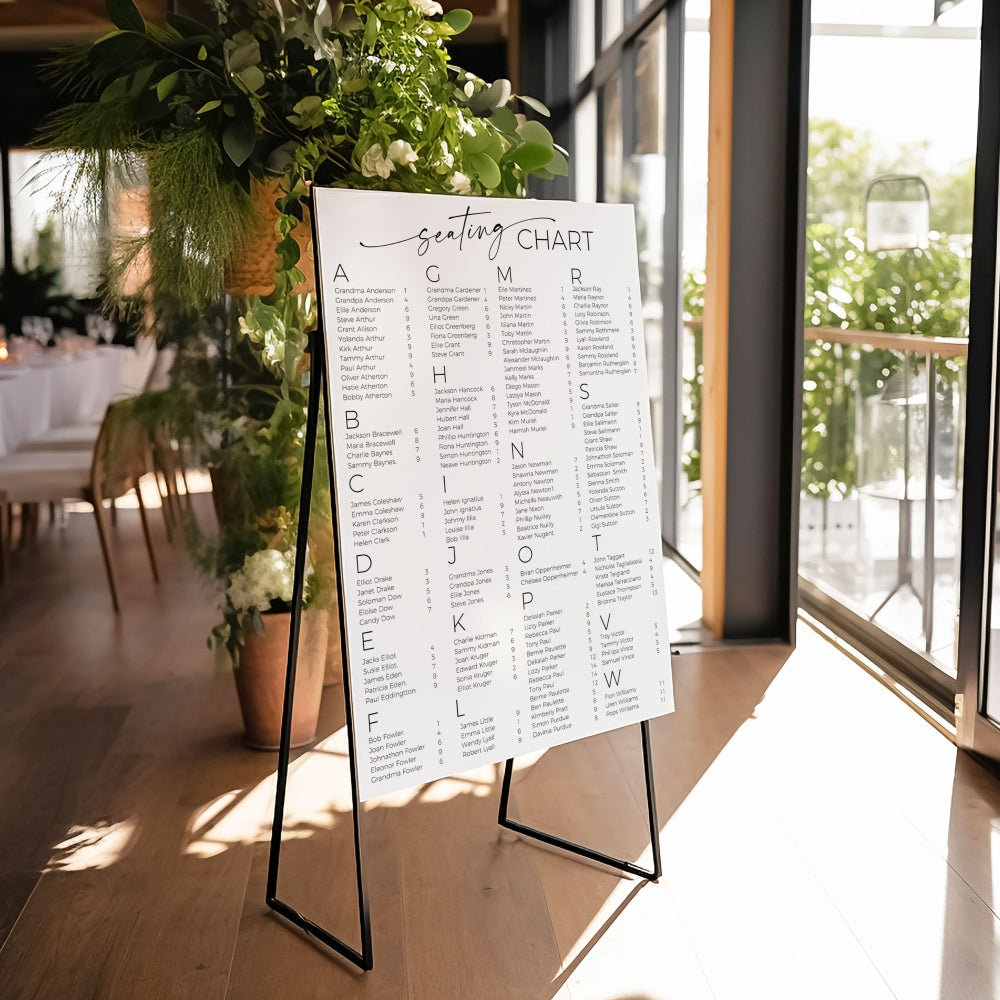 seating CHART
A
Grandma Anderson 1
Grandpa Anderson 4
Ellie Anderson 6
Steve Arthur 9
Grant Allison 6
Yolanda Arthur 3
Kirk Arthur 9
Tammy Arthur 9
Paul Arthur 4
Oliver Atherton 9
Hatie Atherton 6
Bobby Atherton 5
B
Jackson Bracewell 6
Maria Bracewell 8
Charlie Baynes 7
Sammy Baynes 9
C
James Coleshaw 5
Emma Coleshaw 5
Karen Clarkson 9
Peter Clarkson 1
Helen Clark 1
D
Elliot Drake 3
Janet Drake 3
Soloman Dow 5
Eloise Dow 6
Candy Dow 7
E
Jacks Elliot 4
Susie Elliot 5
James Eden 7
Patricia Eden 8
Paul Eddingtton 9
F
Bob Fowler 1
Joan Fowler 4
Johnathon Fowler 6
Eleonor Fowler 9
Grandma Fowler 6
G
Grandma Gardener 1
Grandpa Gardener 4
Gregory Green 6
Una Green 9
Elliot Greenberg 6
Fiona Greenberg 3
Ellie Grant 9
Steve Grant 9
H
Jackson Hancock 6
Maria Hancock 8
Jennifer Hall 7
Hubert Hall 9
Joan Hall 5
Phillip Huntington 6
Fiona Huntington 9
Simon Huntington 1
Neave Huntington 2
I
Helen Ignatius 1
John Ignatius 9
Johnny Illia 7
Louise Illia 2
Bob Illia 3
J
Grandma Jones 3
Grandpa Jones 3
Ellie Jones 5
Steve Jones 6
K
Charlie Kidman 7
Sammy Kidman 6
Joan Kruger 9
Edward Kruger 3
Sonia Kruger 2
Elliot Kruger 6
L
James Little 9
Emma Little 1
Wendy Lyall 6
Robert Lyall 9
M
Elle Martinez
Peter Martinez 4
Nicky Martin 6
John Martin 9
Iliana Martin 6
Toby Martin 3
Christopher Martin
Sarah Mclaughin
Alexander McLaughin
Jahmeel Marks
Kelly Marks
Diego Mason 9
Latoya Mason 5
Tyson McDonald
Kyra McDonald
Kim Muriel
Hamish Muriel 9
N
Jason Newman 7
Shawna Newman 2
Antony Newton
Alyssa Newton1
Michelle Neauwith
Jane Nixon
Phillip Nulley 7
Beatrice Nulily
Xavier Nugent
O
Brian Oppenheimer 4
Chelsea Oppenheimer 4
P
Delailah Parker
Lizzy Parker
Rebecca Paul
Tony Paul
Bernie Paulette
Delailah Parker
Lizzy Parker
Rebecca Paul
Tony Paul
Bernie Paulette
Ben Paulette
Kimberly Pratt
Simon Purdue
Davinia Purdue 8
R
Jackson Ray 1
Maria Raynor 4
Charlie Raynor 6
Lucy Robinson 9
Olivia Robinson 6
Sammy Rothmere 3
Lyall Rowland 9
Karen Rowland 9
Sammy Rowland
Benjamin Rutherglen
Samantha Rutherglen
S
Grandma Salter
Grandpa Salter
Ellie Sallimann
Steve Sallimann
Grant Shaw
Patricia Shaw
Johnathon Soloman
Emma Soloman 2
Sebastian Smith
Yolanda Sutton
Oliver Sutton
Ursula Sutton
Clementine Sutton 2
Gigi Sutton 3
T
John Taggart 12
Nicholas Tagliailaseia 4
Krista Teigland 9
Marissa Terracciano 4
Eustace Thompson 5
Brianna Traylor 13
V
Troy Victor 5
Tammy Victor 4
Phillipa Vince 5
Samuel Vince 5
W
Fion Williams 11
Uren Williams 11
Pops Williams 11